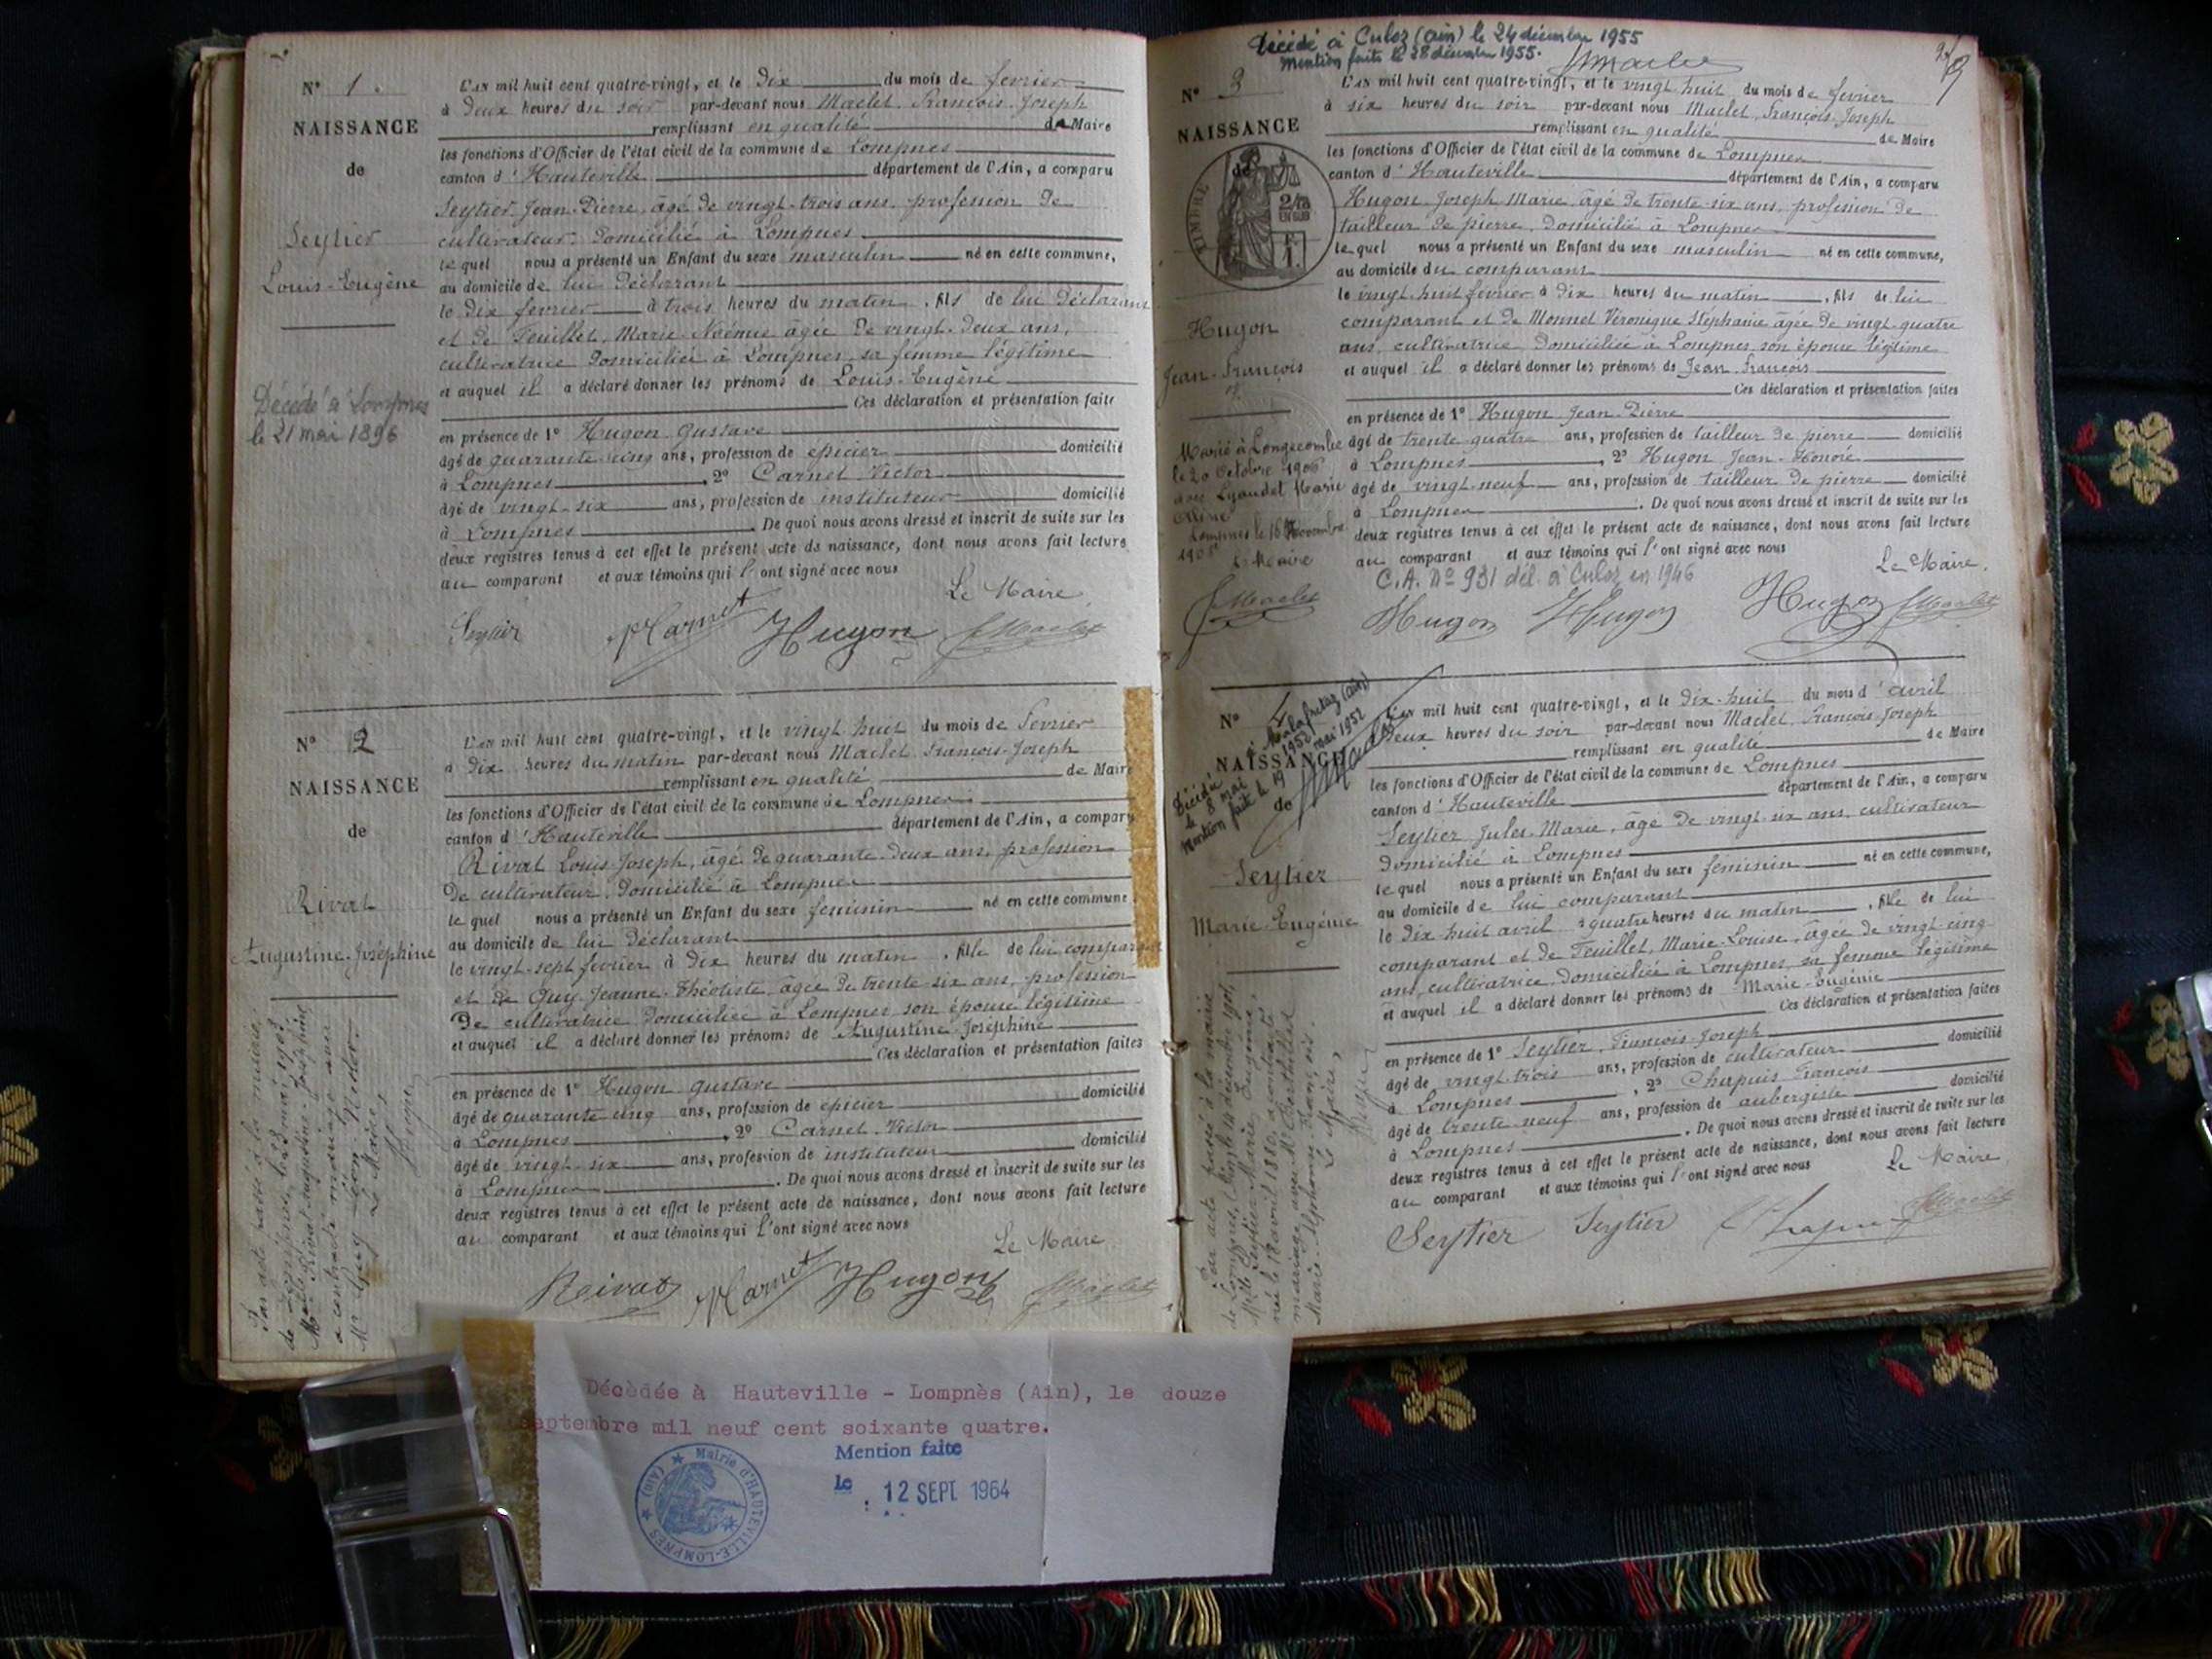 N° 1.
NAISSANCE
de
Seytier
Louis-Eugène
Décédé à Lompnes
le 21 mai 1896
L'an mil huit cent quatre-vingt, et le dix du mois de fevrier
à deux heures du soir par-devant nous Maclet, François-Joseph
remplissant en qualité de Maire
les fonctions d'Officier de l'état civil de la commune de Lompnes
canton d'Hauteville département de l'Ain, a comparu
Seytier Jean-Pierre, âgé de vingt-trois ans, profession de
cultivateur, domicilié à Lompnes
le quel nous a présenté un Enfant du sexe masculin né en cette commune,
au domicile de lui déclarant
le dix fevrier à trois heures du matin, fils de lui déclarant
et de Feuillet, Marie-Noémie âgée de vingt-deux ans,
cultivatrice domiciliée à Lompnes, sa femme légitime
et auquel il a déclaré donner les prénoms de Louis-Eugène
Ces déclaration et présentation faite
en présence de 1° Hugon Gustave
âgé de quarante-cinq ans, profession de épicier domicilié
à Lompnes, 2° Carnet Victor
âgé de vingt-six ans, profession de instituteur domicilié
à Lompnes. De quoi nous avons dressé et inscrit de suite sur les
deux registres tenus à cet effet le présent acte de naissance, dont nous avons fait lecture
au comparant et aux témoins qui l'ont signé avec nous
Le Maire
Seytier Carnet Hugon Maclet
N° 2
NAISSANCE
de
Rivat
Augustine-Joséphine
L'an mil huit cent quatre-vingt, et le vingt huit du mois de fevrier
à dix heures du matin par-devant nous Maclet François-Joseph
remplissant en qualité de Maire
les fonctions d'Officier de l'état civil de la commune de Lompnes
canton d'Hauteville département de l'Ain, a comparu
Rivat Louis-Joseph, âgé de quarante-deux ans, profession
de cultivateur, domicilié à Lompnes
le quel nous a présenté un Enfant du sexe feminin né en cette commune
au domicile de lui déclarant
le vingt-sept fevrier à dix heures du matin, fille de lui comparant
et de Guy Jeanne-Théotiste, âgée de trente-six ans, profession
de cultivatrice domiciliée à Lompnes, son épouse légitime
et auquel il a déclaré donner les prénoms de Augustine-Joséphine
Ces déclaration et présentation faites
en présence de 1° Hugon Gustave
âgé de quarante cinq ans, profession de épicier domicilié
à Lompnes, 2° Carnet Victor
âgé de vingt-six ans, profession de instituteur domicilié
à Lompnes. De quoi nous avons dressé et inscrit de suite sur les
deux registres tenus à cet effet le présent acte de naissance, dont nous avons fait lecture
au comparant et aux témoins qui l'ont signé avec nous
Le Maire
Rivat Carnet Hugon Maclet
Par acte passé à la mairie
de Lompnes,
Rivat Augustine-Joséphine
a contracté mariage avec
Mr Guy Léon
Le Maire,
Décèdée à Hauteville - Lompnès (Ain), le douze
septembre mil neuf cent soixante quatre.
Mention faite
le 12 SEPT 1964
Mairie d'HAUTEVILLE-LOMPNES (Ain)
Décédé à Culoz (Ain) le 24 décembre 1955
Mention faite le 28 décembre 1955.
N° 3
NAISSANCE
de
TIMBRE
Hugon
Jean-François
Marié à Longecombe
le 20 octobre 1906
avec Lyaudet Marie
Lompnes le 16 Novembre
Le Maire
Maclet
L'an mil huit cent quatre-vingt, et le vingt huit du mois de fevrier
à six heures du soir par-devant nous Maclet, François-Joseph
remplissant en qualité de Maire
les fonctions d'Officier de l'état civil de la commune de Lompnes
canton d'Hauteville département de l'Ain, a comparu
Hugon Joseph Marie âgé de trente-six ans, profession de
tailleur de pierre, domicilié à Lompnes
le quel nous a présenté un Enfant du sexe masculin né en cette commune,
au domicile du comparant
le vingt-huit fevrier à dix heures du matin, fils de lui
comparant et de Monnet Véronique Stéphanie âgée de vingt-quatre
ans, cultivatrice domiciliée à Lompnes, son épouse légitime
et auquel il a déclaré donner les prénoms de Jean François
Ces déclaration et présentation faites
en présence de 1° Hugon Jean-Pierre
âgé de trente quatre ans, profession de tailleur de pierre domicilié
à Lompnes, 2° Hugon Jean-Honoré
âgé de vingt-neuf ans, profession de tailleur de pierre domicilié
à Lompnes. De quoi nous avons dressé et inscrit de suite sur les
deux registres tenus à cet effet le présent acte de naissance, dont nous avons fait lecture
au comparant et aux témoins qui l'ont signé avec nous
Le Maire,
C.A. N° 931 dél. à Culoz en 1946
Hugon Hugon Hugon Maclet
N° 4
NAISSANCE
de
Décédée
le 8 mai 1952
Mention faite le 19 mai 1952
Seytier
Marie-Eugénie
L'an mil huit cent quatre-vingt, et le dix-huit du mois d'avril
deux heures du soir par-devant nous Maclet François-Joseph
remplissant en qualité de Maire
les fonctions d'Officier de l'état civil de la commune de Lompnes
canton d'Hauteville département de l'Ain, a comparu
Seytier Jules-Marie, âgé de vingt-six ans, cultivateur
domicilié à Lompnes
le quel nous a présenté un Enfant du sexe feminin né en cette commune,
au domicile de lui comparant
le dix-huit avril à quatre heures du matin, fille de lui
comparant et de Feuillet, Marie-Louise, âgée de vingt-cinq
ans, cultivatrice, domiciliée à Lompnes, sa femme légitime
et auquel il a déclaré donner les prénoms de Marie-Eugénie
Ces déclaration et présentation faites
en présence de 1° Seytier, François-Joseph
âgé de vingt-trois ans, profession de cultivateur domicilié
à Lompnes, 2° Chapuis François
âgé de trente-neuf ans, profession de aubergiste domicilié
à Lompnes. De quoi nous avons dressé et inscrit de suite sur les
deux registres tenus à cet effet le présent acte de naissance, dont nous avons fait lecture
au comparant et aux témoins qui l'ont signé avec nous
Le Maire
Seytier Seytier Chapuis Maclet
Par acte passé à la mairie
de Lompnes, (Ain) le 14 décembre 1901,
Melle Seytier Marie Eugénie,
née le 18 avril 1880, a contracté
mariage avec Mr Berthillet
Marie-Alphonse-François.
Le Maire,